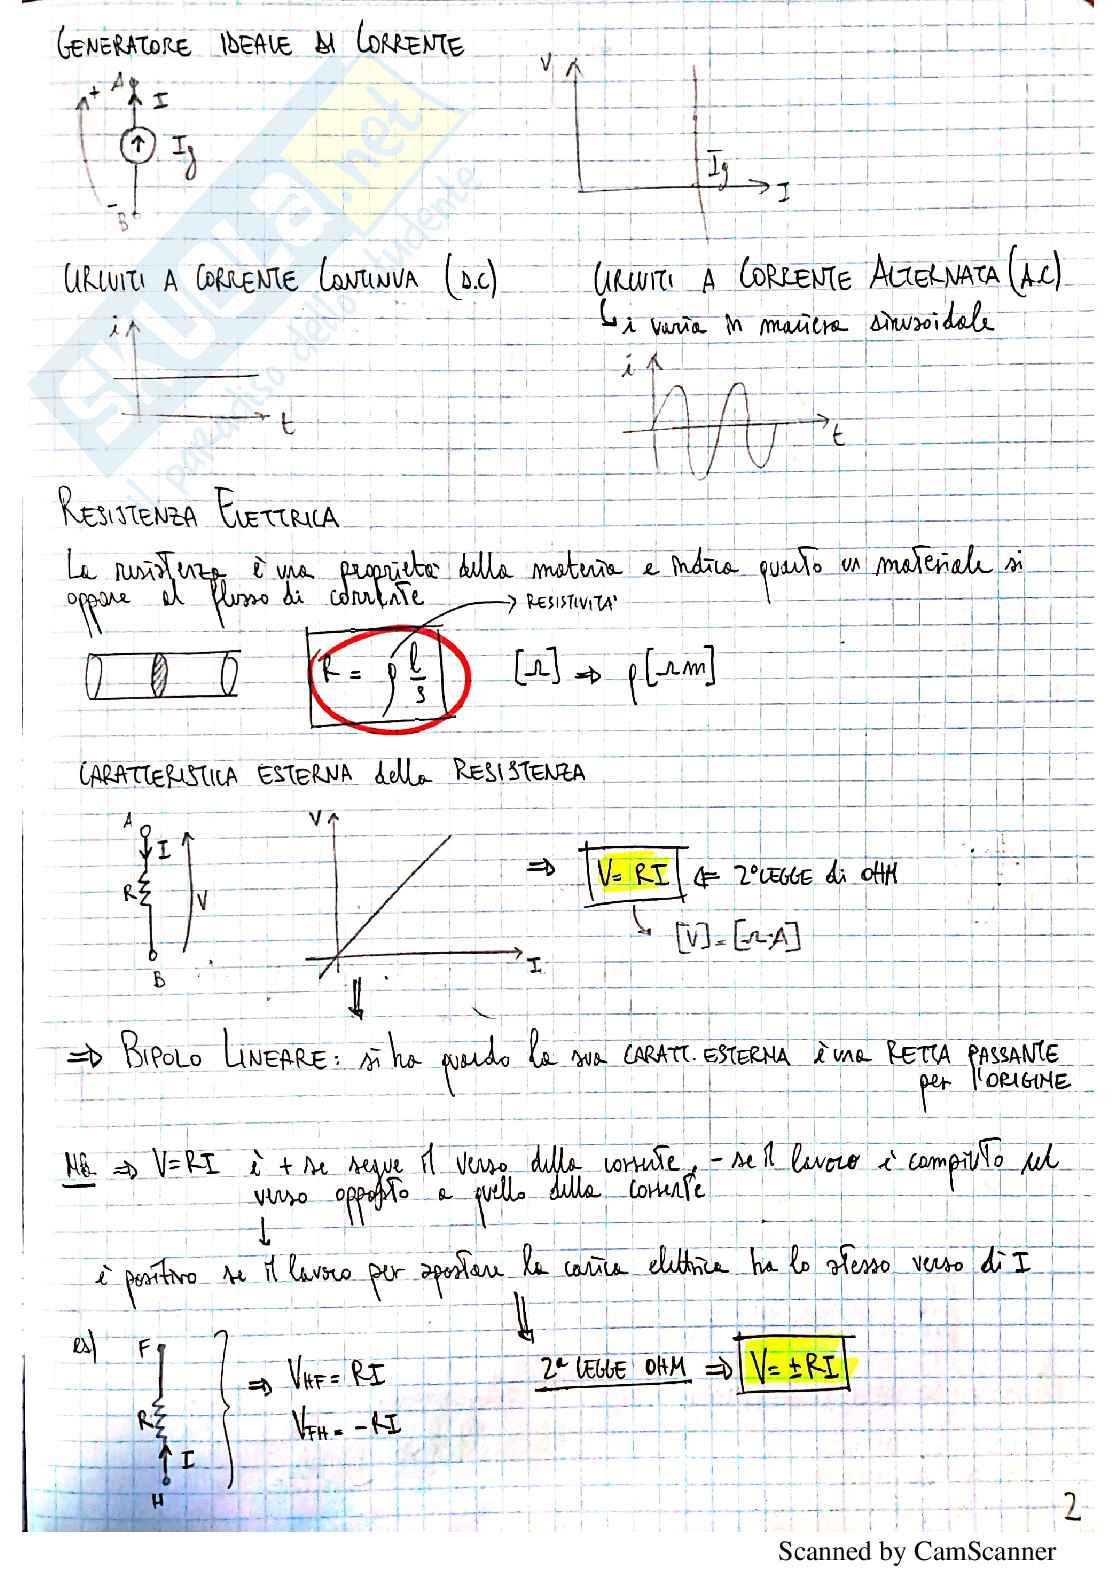 GENERATORE IDEALE DI CORRENTE
+ A I
Ig
- B
V
Ig
I
CIRCUITI A CORRENTE CONTINUA (D.C)
i
t
CIRCUITI A CORRENTE ALTERNATA (A.C)
↳ i varia in maniera sinusoidale
i
t
SKUOLA.net
il paradiso dello studente
RESISTENZA ELETTRICA
La resistenza è una proprietà della materia e indica quanto un materiale si
oppone al flusso di corrente
→ RESISTIVITA'
R = ρ l/s
[Ω] ⇒ ρ[Ωm]
CARATTERISTICA ESTERNA della RESISTENZA
A
I
R
V
B
V
I
⇒ V= RI ⇐ 2° LEGGE di OHM
↳ [V]=[Ω·A]
⇒ BIPOLO LINEARE: si ha quando la sua CARATT. ESTERNA è una RETTA PASSANTE
per l'ORIGINE
NB ⇒ V=RI è + se segue il verso della corrente, - se il lavoro è compiuto nel
verso opposto a quello della corrente
↓
è positivo se il lavoro per spostare la carica elettrica ha lo stesso verso di I
es)
F
R
I
H
⇒ VHF = RI
VFH = -RI
2ª LEGGE OHM ⇒ V= ± RI
2
Scanned by CamScanner